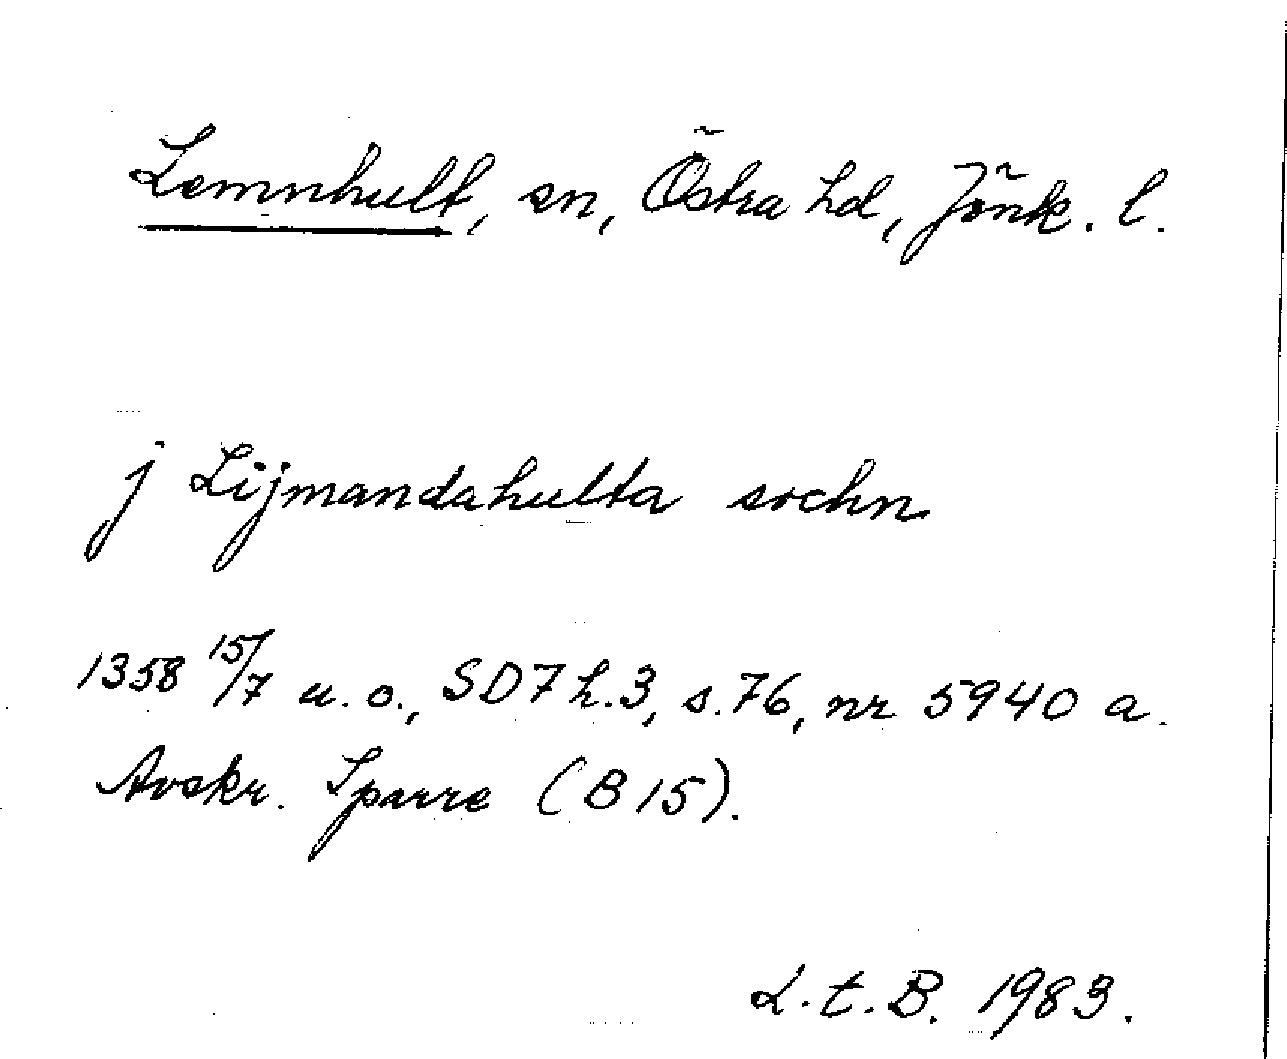 Lemnhult, sn, Östra hd, Jönk. l.
j Lijmandahulta sochn
1358 15/7 u. o., SD7 h.3, s.76, nr 5940 a.
Avskr. Sparre (B 15).
L.t.B. 1983.